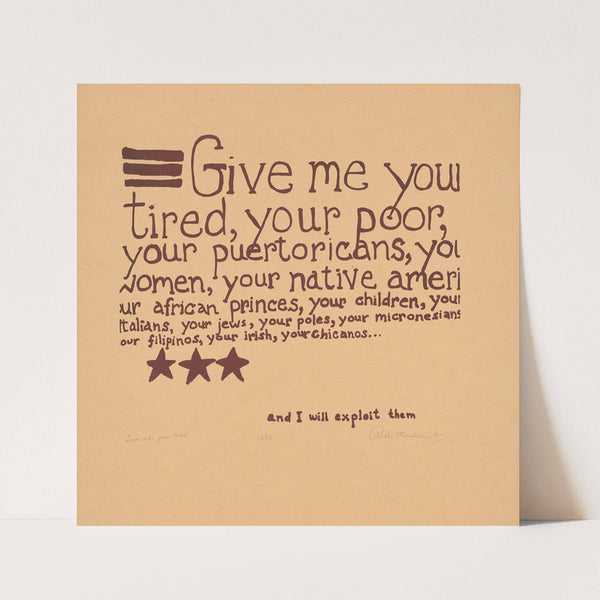 Give me you
tired, your poor,
your puertoricans, you
women, your native ameri
ur african princes, your children, your
Italians, your jews, your poles, your micronesians
our filipinos, your irish, your chicanos...
and I will exploit them
Give me your tired